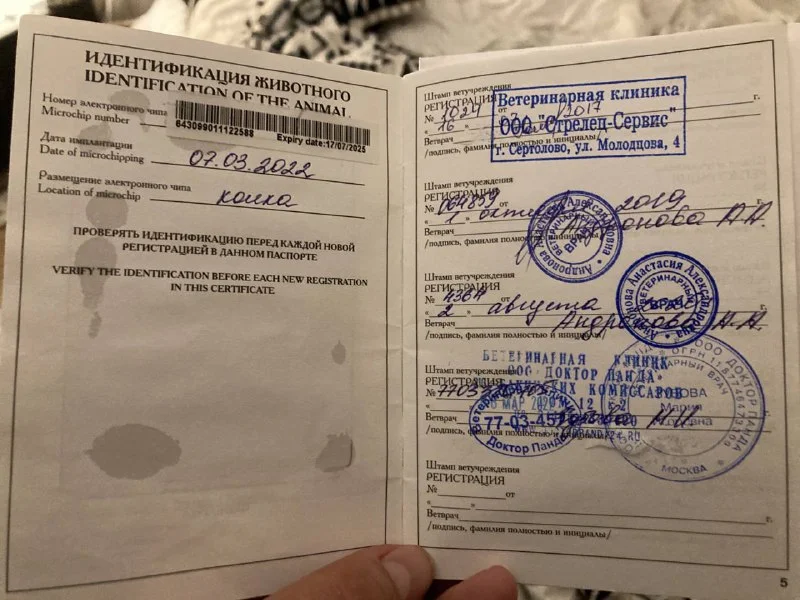 ИДЕНТИФИКАЦИЯ ЖИВОТНОГО
IDENTIFICATION OF THE ANIMAL
Номер электронного чипа
Microchip number
643099011122588
Expiry date:17/07/2025
Дата имплантации
Date of microchipping 07.03.2022
Размещение электронного чипа
Location of microchip холка
ПРОВЕРЯТЬ ИДЕНТИФИКАЦИЮ ПЕРЕД КАЖДОЙ НОВОЙ
РЕГИСТРАЦИЕЙ В ДАННОМ ПАСПОРТЕ
VERIFY THE IDENTIFICATION BEFORE EACH NEW REGISTRATION
IN THIS CERTIFICATE
Штамп ветучреждения
РЕГИСТРАЦИЯ
№ 1024 от
" 16 " 2017 г.
Ветврач
/подпись, фамилия полностью и инициалы/
Ветеринарная клиника
ООО "Стрелец-Сервис"
г. Сертолово, ул. Молодцова, 4
Штамп ветучреждения
РЕГИСТРАЦИЯ
№ 004859
" 1 " октября 2019
Ветврач Андронова А.А.
/подпись, фамилия полностью и инициалы/
Андронова Анастасия Александровна
ВЕТЕРИНАРНЫЙ
ВРАЧ
Штамп ветучреждения
РЕГИСТРАЦИЯ
№ 4364
" 2 " августа
Ветврач Андронова А.А.
/подпись, фамилия полностью и инициалы/
Андронова Анастасия Александровна
ВЕТЕРИНАРНЫЙ
ВРАЧ
Штамп ветучреждения
РЕГИСТРАЦИЯ
ВЕТЕРИНАРНАЯ КЛИНИКА
ООО "ДОКТОР ПАНДА"
КОМИССАРОВ
МАР
Ветврач
/подпись, фамилия полностью и инициалы/
77-03-45
Доктор Панда
ООО ДОКТОР ПАНДА
ОГРН
ВЕТЕРИНАРНЫЙ ВРАЧ
Мария
МОСКВА
Штамп ветучреждения
РЕГИСТРАЦИЯ
№ от
" " г.
Ветврач
/подпись, фамилия полностью и инициалы/
5